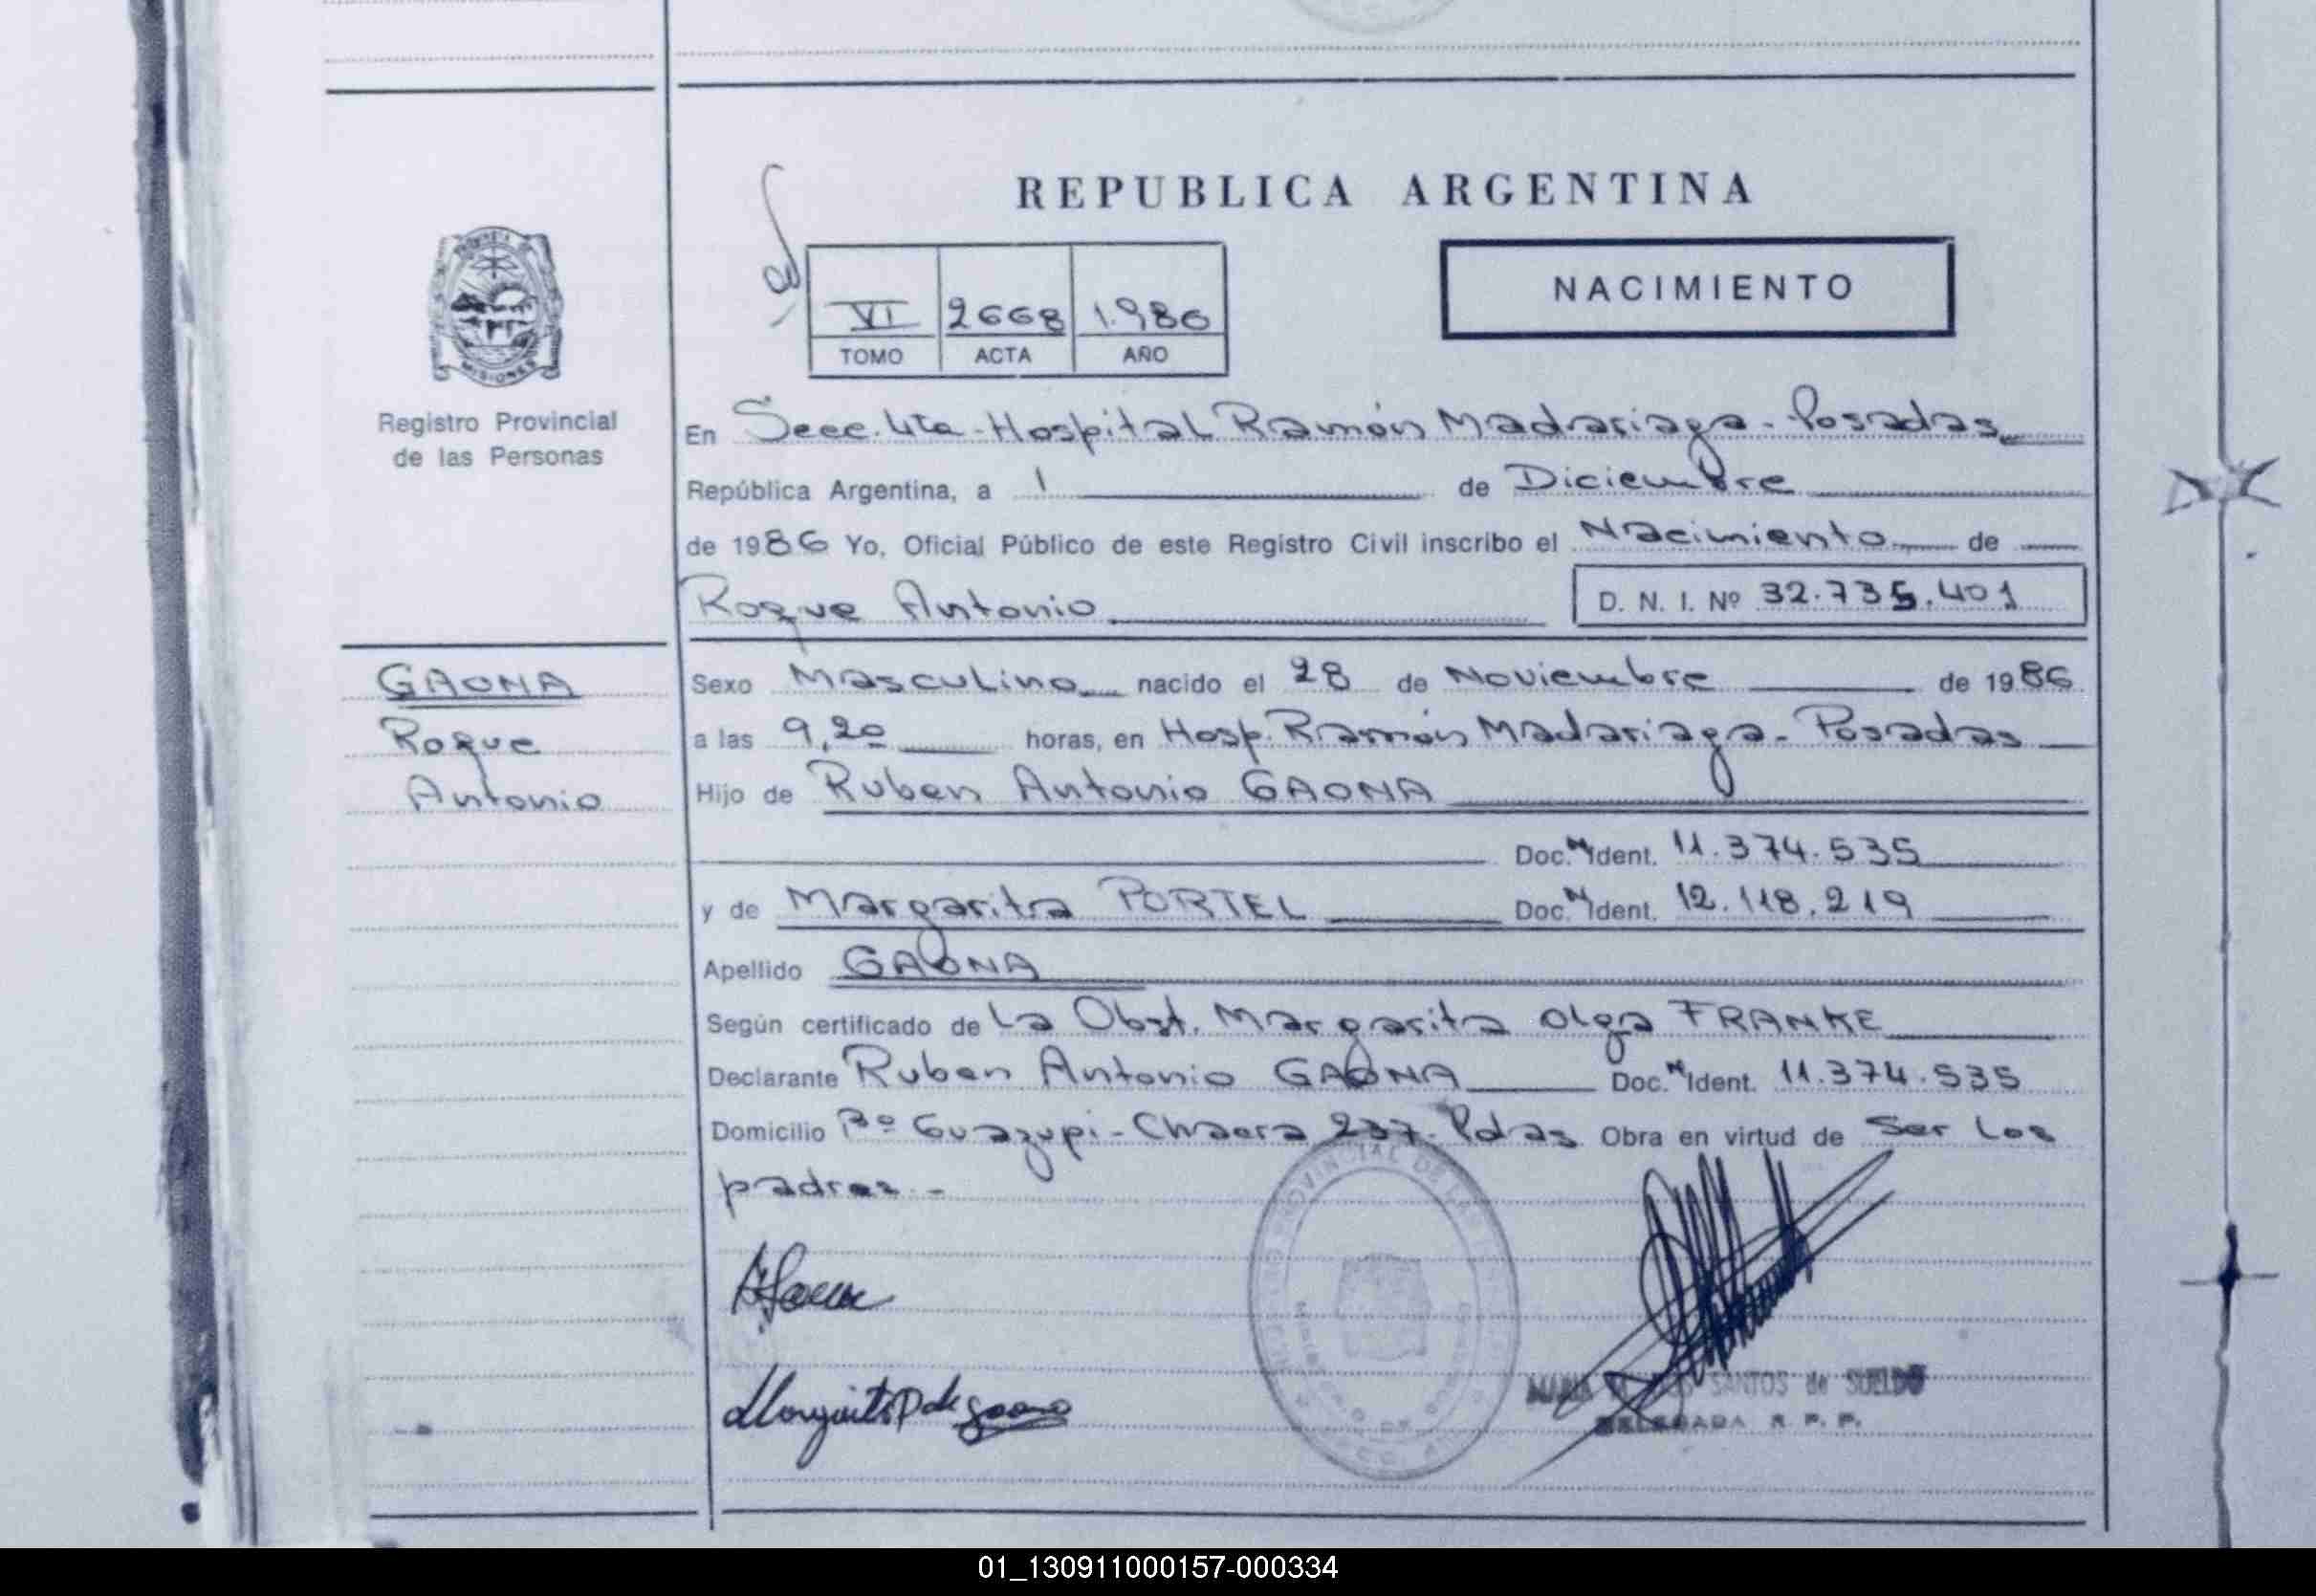 REPUBLICA ARGENTINA
NACIMIENTO
VI 2668 1.986
TOMO ACTA AÑO
MISIONES
Registro Provincial
de las Personas
En Secc. 4ta - Hospital Ramón Madariaga - Posadas
República Argentina, a 1 de Diciembre
de 1986 Yo, Oficial Público de este Registro Civil inscribo el Nacimiento de
Roque Antonio
D. N. I. Nº 32.735.401
GAONA
Roque
Antonio
Sexo Masculino nacido el 28 de Noviembre de 1986
a las 9,20 horas, en Hosp. Ramón Madariaga - Posadas
Hijo de Ruben Antonio GAONA
Doc. N Ident. 11.374.535
y de Margarita PORTEL Doc. N Ident. 12.118.219
Apellido GAONA
Según certificado de La Obst. Margarita Olga FRANKE
Declarante Ruben Antonio GAONA Doc. N Ident. 11.374.535
Domicilio Bº Guazupi - Chacra 237 - Pdas Obra en virtud de Ser Los
padres -
Margarita P de gaona
SANTOS de SUELDO
DELEGADA R. P. P.
01_130911000157-000334